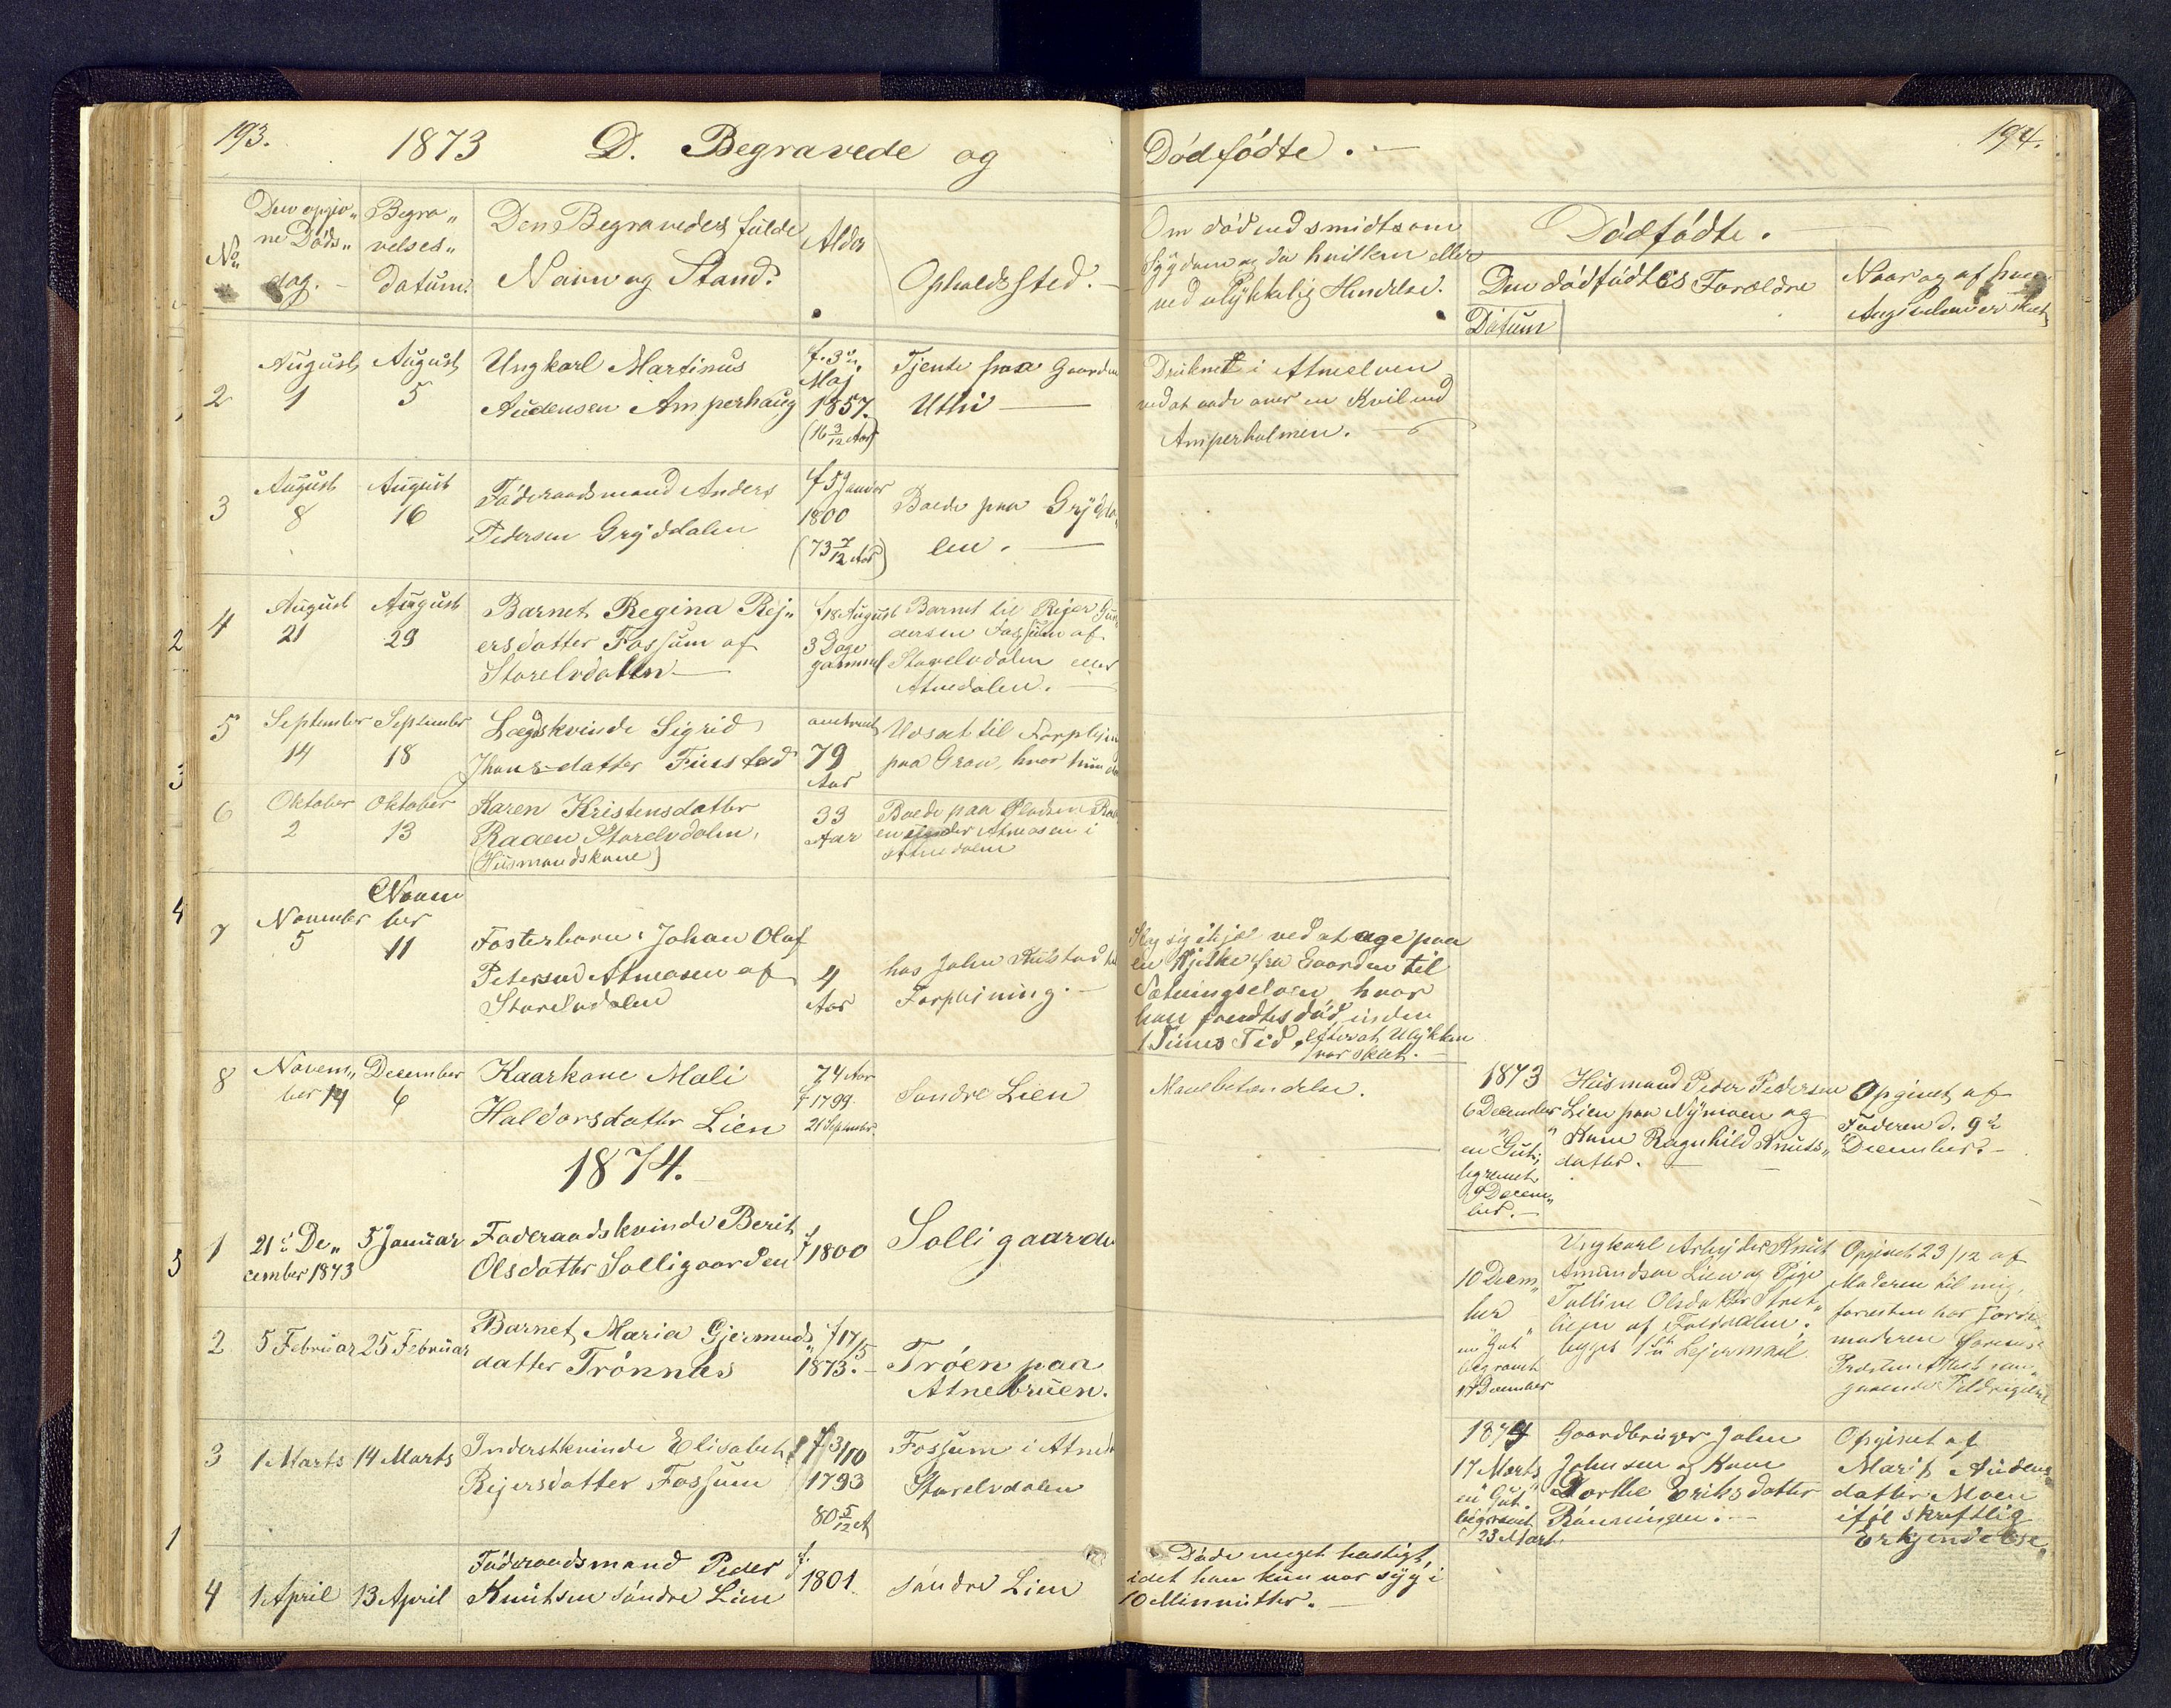 193.
1873 D. Begravede og
Dödfödte.
194.
No
Den opgiv„
ne Döds„
dag.
Begra„
velses„
datum.
Den Begravedes fulde
Navn og Stand.
Alder
Opholdssted.
Om död ved smidtsom
Sygdom og da hvilken eller
ved ulykkelig Hændelse.
Dödfödte.
Datum
Den dödfödtes Forældre
Naar og af hvem
2
August
1
August
5
Ungkarl Martinus
Audensen Amperhaug
f. 3die
Maj
1857.
(16 3/12 Aar)
Tjente paa Gaarden
Uthi
Druknet i Atneelven
ved at ende over en Kvil ved
Amperholmen.
3
August
8
August
16
Föderaadsmand Anders
Pedersen Gryddalen
f 5 Januar
1800
(73 7/12 Aar)
Boede paa Grydda„
len.
4
August
21
August
29
Barnet Regina Rej„
ersdatter Fossum af
Storelvdalen
f 18 August
3 Dage
gammel
Barnet til Rejer Gun„
dersen Fossum af
Storelvdalen eller
Atnedalen.
5
September
14
September
18
Lægdskvinde Sigrid
Jhonsdatter Finstad
omtrent
79
Aar
Udsat til Forplejn
paa Gran, hvor hun
6
Oktober
2
Oktober
13
Karen Kristensdatter
Raaen Storelvdalen,
(Husmandskone)
33
Aar
Boede paa Pladsen Raa
en under Atneosen i
Atnedalen
7
November
5
Novem
ber
11
Fosterbarn: Johan Olaf
Petersen Atneosen af
Storelvdalen
4
Aar
hos John
Forplejning.
Slog sig ihjel ved at age paa
en Kjelke fra Gaarden til
Sætningselven, hvor
han fandtes död inden
1 Times Tid, efterat Ulykken
var skeet.
8
Novem„
ber 14
December
6
Kaarkone Mali
Haldorsdatter Lien
74 Aar
f 1799
21 September.
Söndre Lien
Mavebetændelse.
1873
6 December
en Gut;
begravet
9 Decem„
ber.
Husmand Peder Pedersen
Lien paa Nymoen og
Kone Ragnhild Knuts„
datter.
Opgivet af
Faderen d. 9de
December.
1874.
1
21de De„
cember 1873
5 Januar
Föderaadskvinde Berit
Olsdatter Solligaarden
f 1800
Solligaarden
10 Decem„
ber
en Gut
begravet
17 December
Ungkarl Arbejder Knut
Amundsen Lien og Pige
Talline Olsdatter Stret„
lien af Foldalen.
begges 1ste Lejermaal.
Opgivet 23/12 af
Moderen til mig,
forresten har Jorde„
moderen
2
5 Februar
25 Februar
Barnet Maria Gjermunds„
datter Trönnes
f 17/5
1873.
Tröen paa
Atnebruen.
3
1 Marts
14 Marts
Inderstkvinde Elisabet
Rejersdatter Fossum
f 3/10
1793
80 5/12 A
Fossum i Atned
Storelvdalen
1874
17 Marts
en Gut.
begravet
23 Marts
Gaardbruger John
Johnsen og Kone
Dorthe Eriksdatter
Rönningen.
Opgivet af
Marit Audens„
datter Moen
iföl skriftlig
Erkjendelse.
4
1 April
13 April
Föderaadsmand Peder
Knutsen söndre Lien
f.
1801
söndre Lien
Döde meget hastigt,
idet han kun var syg i
10 Minnutter.
2
3
4
5
1